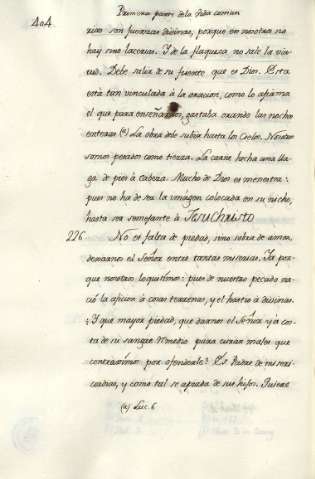 404
Primera parte de la Vida comun
rias son fuerzas divinas, porque en nosotros no
hay sino lacerias. Y de la flaqueza no sale la vir
tud. Debe salir de su fuente que es Dios. Esta
está tan vinculada à la oracion, como lo afirma
el que para enseñarlos, gastaba orando las noches
enteras (a) La obra debe subir hasta los Cielos. Nosotros
somos pesados como tierra. La carne hecha una lla
ga de pies à cabeza. Mucho de Dios es menester:
pues no ha de ser la imagen colocada en su nicho,
hasta ser semejante à Jesuchristo
226. No es falta de piedad, sino sobra de amor,
dexarnos el Señor entre tantas miserias. Ya por
que nosotros lo quisimos: pues de nuestro pecado na
ció la aficion à cosas terrenas, y el hastio à divinas.
Y que mayor piedad, que darnos el Señor y à cos
ta de su sangre remedio para curar males que
contraximos por ofenderle? Es Padre de miseri
cordias, y como tal se apiada de sus hijos. Quiere
(a) Luc. 6